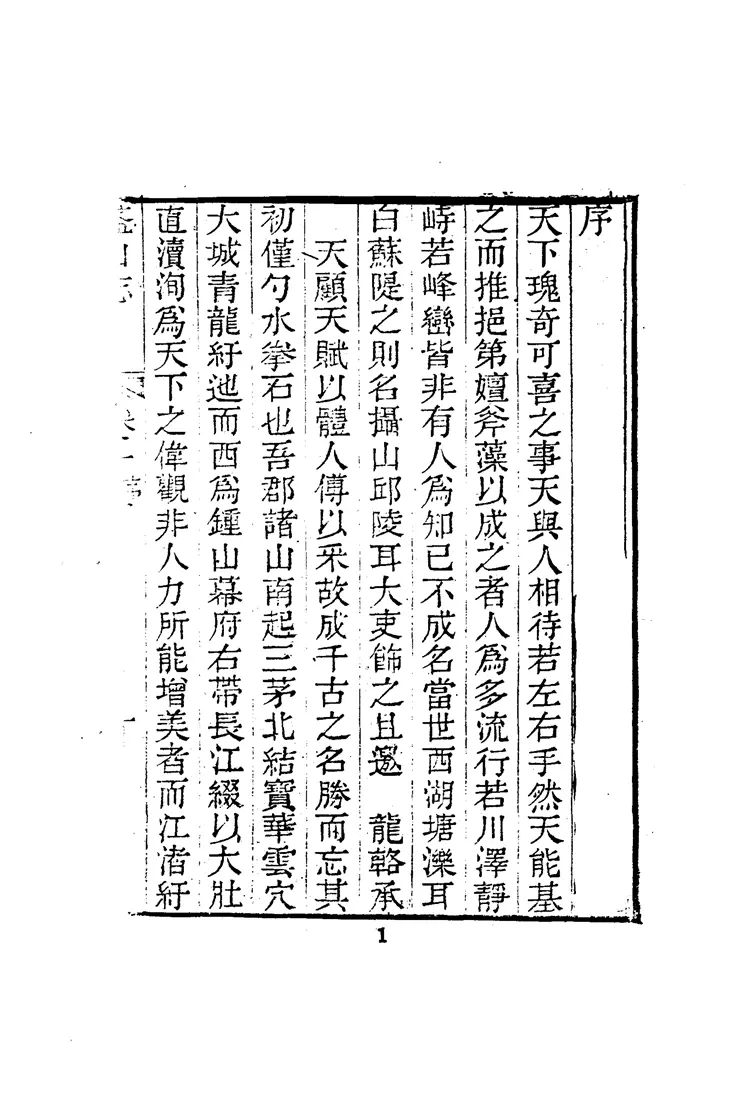 序
天下瑰奇可喜之事天與人相待若左右手然天能基
之而推挹第嬗斧藻以成之者人爲多流行若川澤靜
峙若峰巒皆非有人爲知己不成名當世西湖塘濼耳
白蘇隄之則名攝山邱陵耳大吏飾之且邀　龍輅承
天顧天賦以體人傅以采故成千古之名勝而忘其
初僅勺水拳石也吾郡諸山南起三茅北結寶華雲穴
大城青龍紆迆而西爲鍾山幕府右帶長江綴以大壯
直瀆洵爲天下之偉觀非人力所能增美者而江渚紆
山志
1